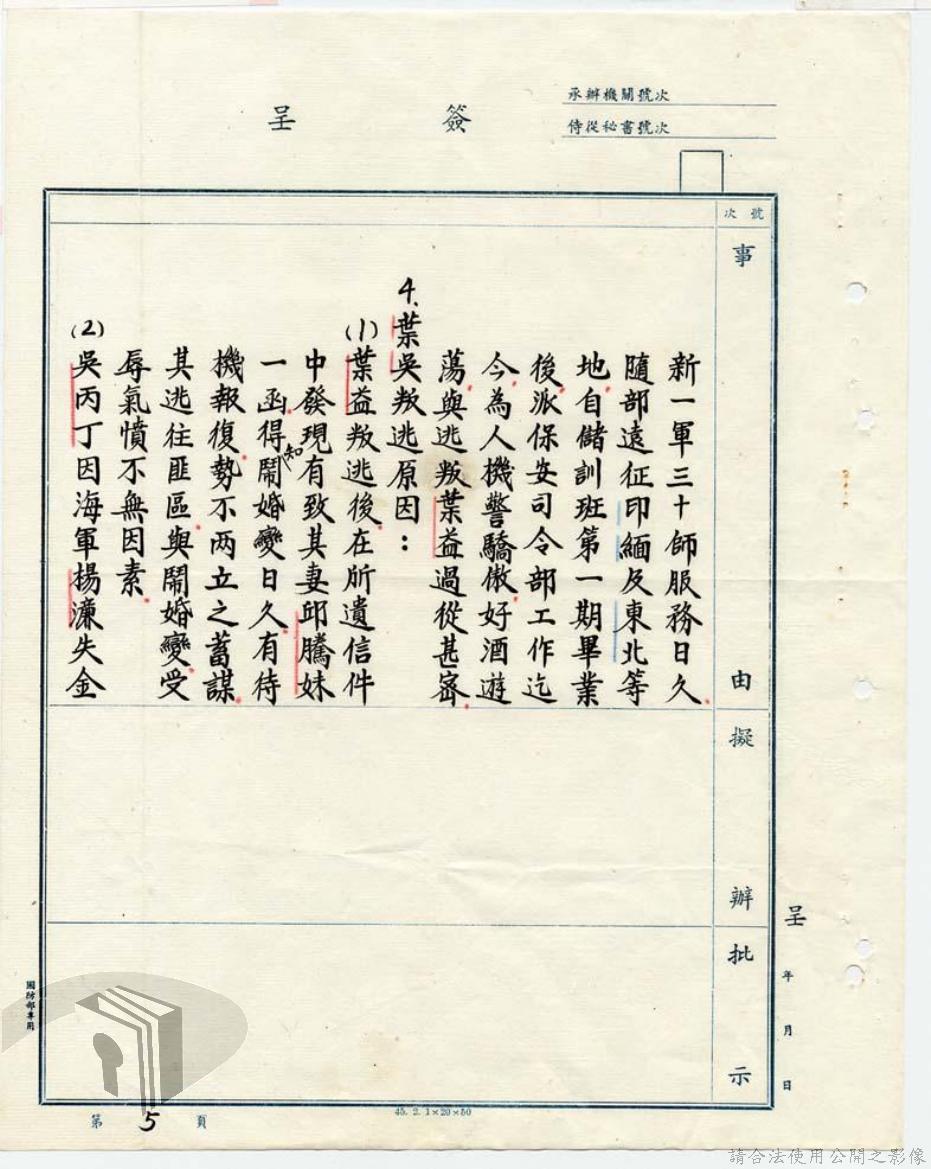 承辦機關號次
侍從秘書號次
簽呈
號次
事由
擬辦
批示
新一軍三十師服務日久
隨部遠征印緬及東北等
地自儲訓班第一期畢業
後派保安司令部工作迄
今為人機警驕傲好酒遊
蕩與逃叛葉益過從甚密
4、葉吳叛逃原因：
(1)葉益叛逃後在所遺信件
中發現有致其妻邱騰妹
一函得知鬧婚變日久有待
機報復勢不兩立之蓄謀
其逃往匪區與鬧婚變受
辱氣憤不無因素
(2)吳丙丁因海軍揚濂失金
呈
年月日
國防部專用
第5頁
45. 2. 1×20×50
請合法使用公開之影像